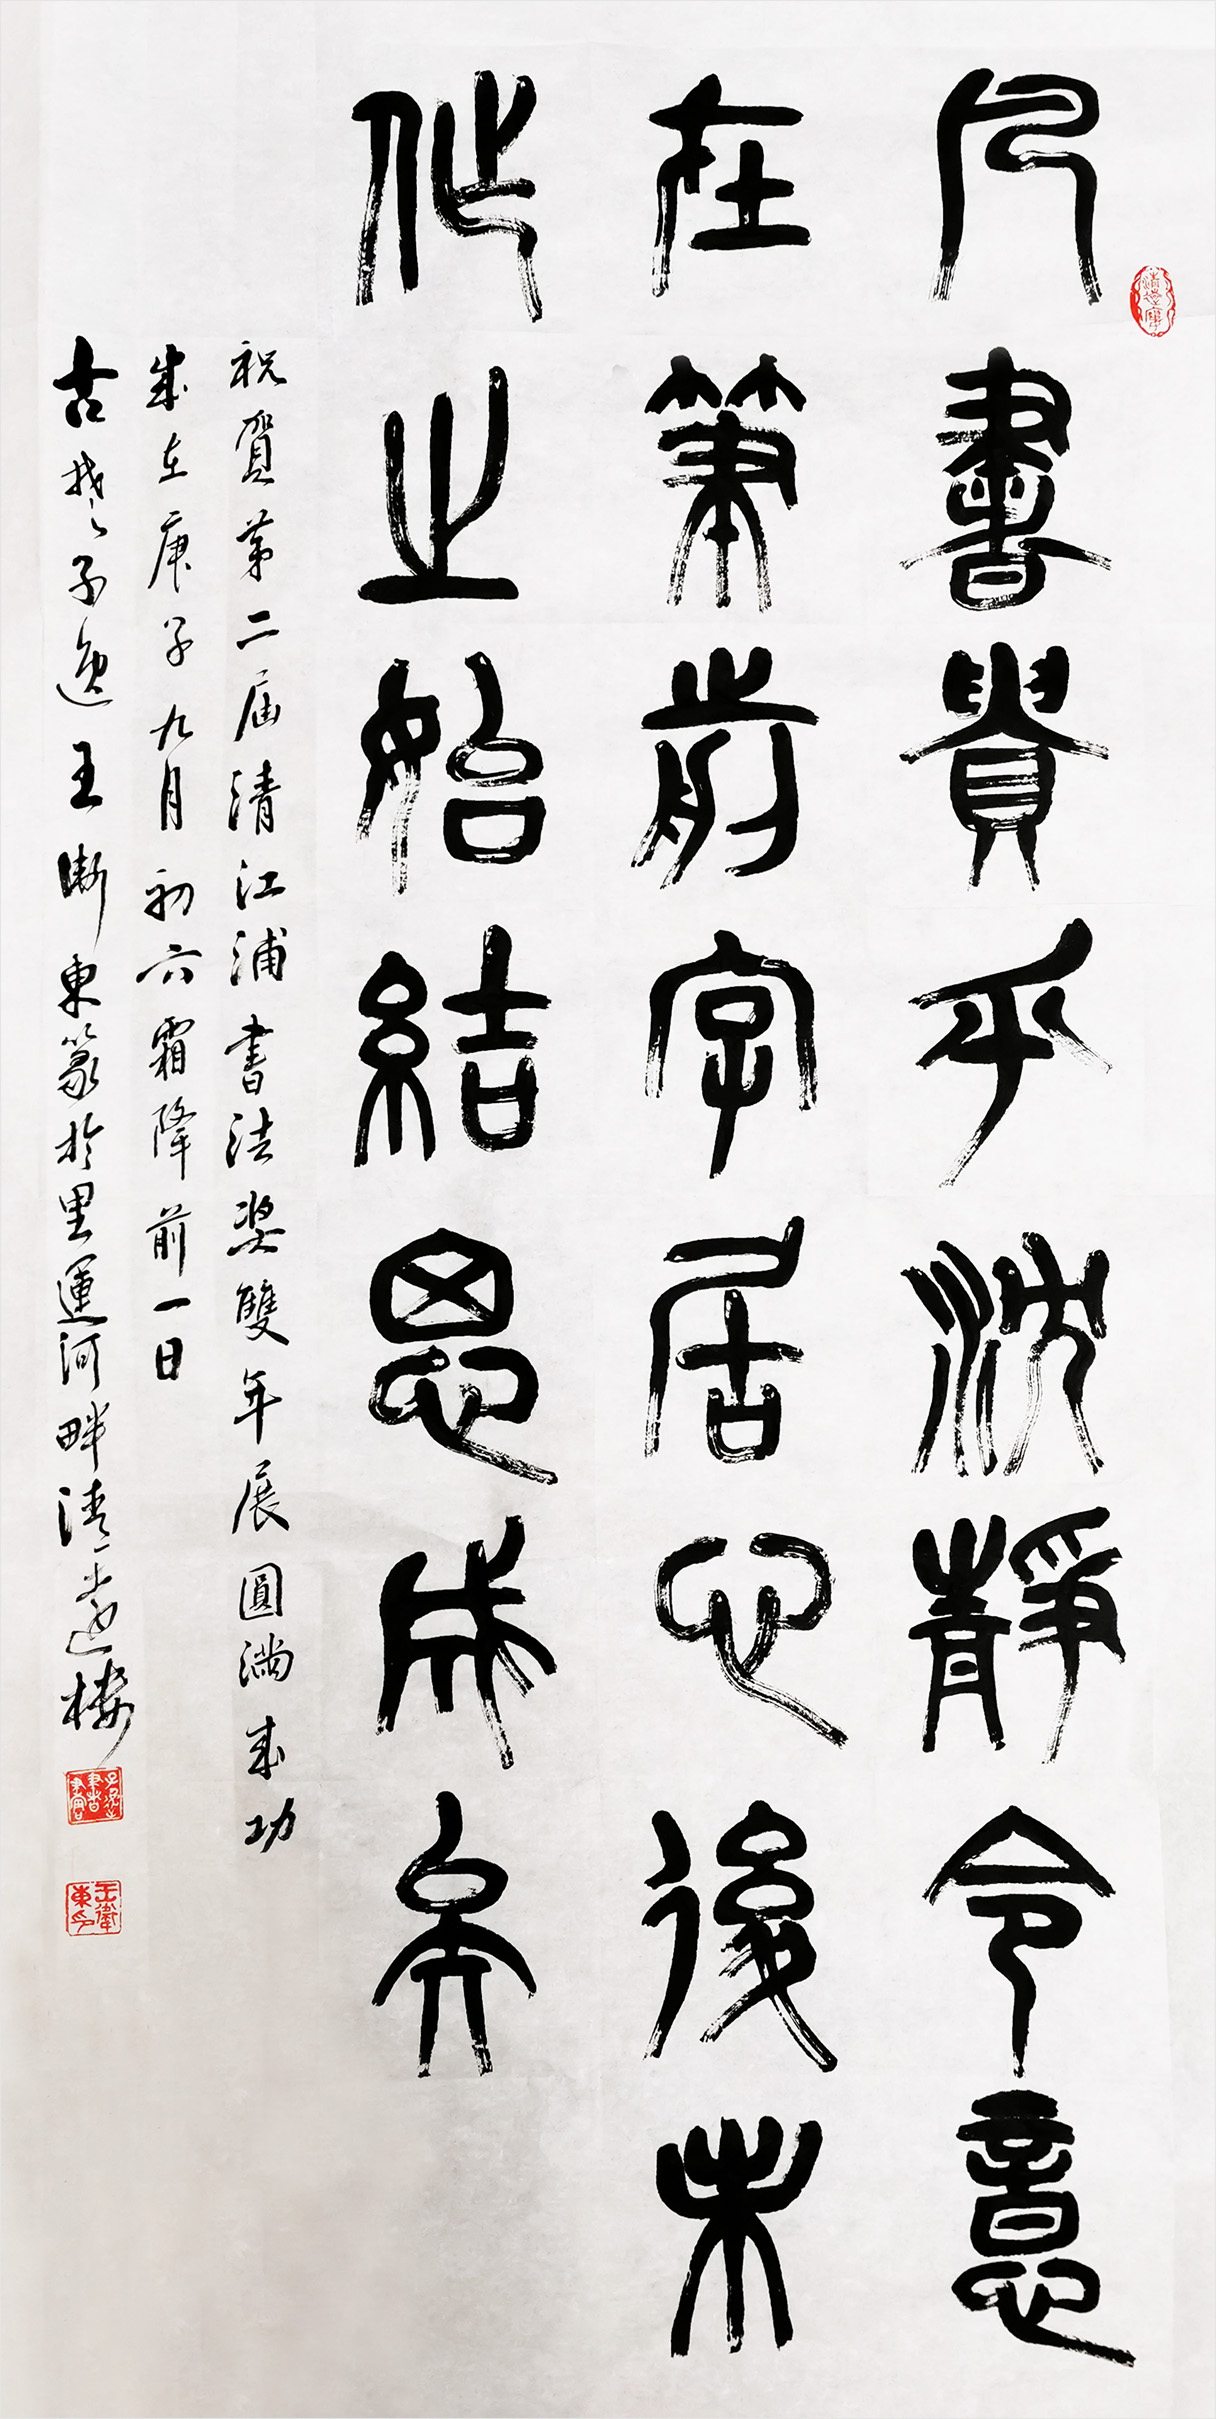 凡書貴乎沈静令意
在筆前字居心後未
作之始結思成矣
祝賀第二届清江浦書法奖雙年展圓满成功
時在庚子九月初六霜降前一日
古楚子逸王衛東篆於里運河畔清遠樓